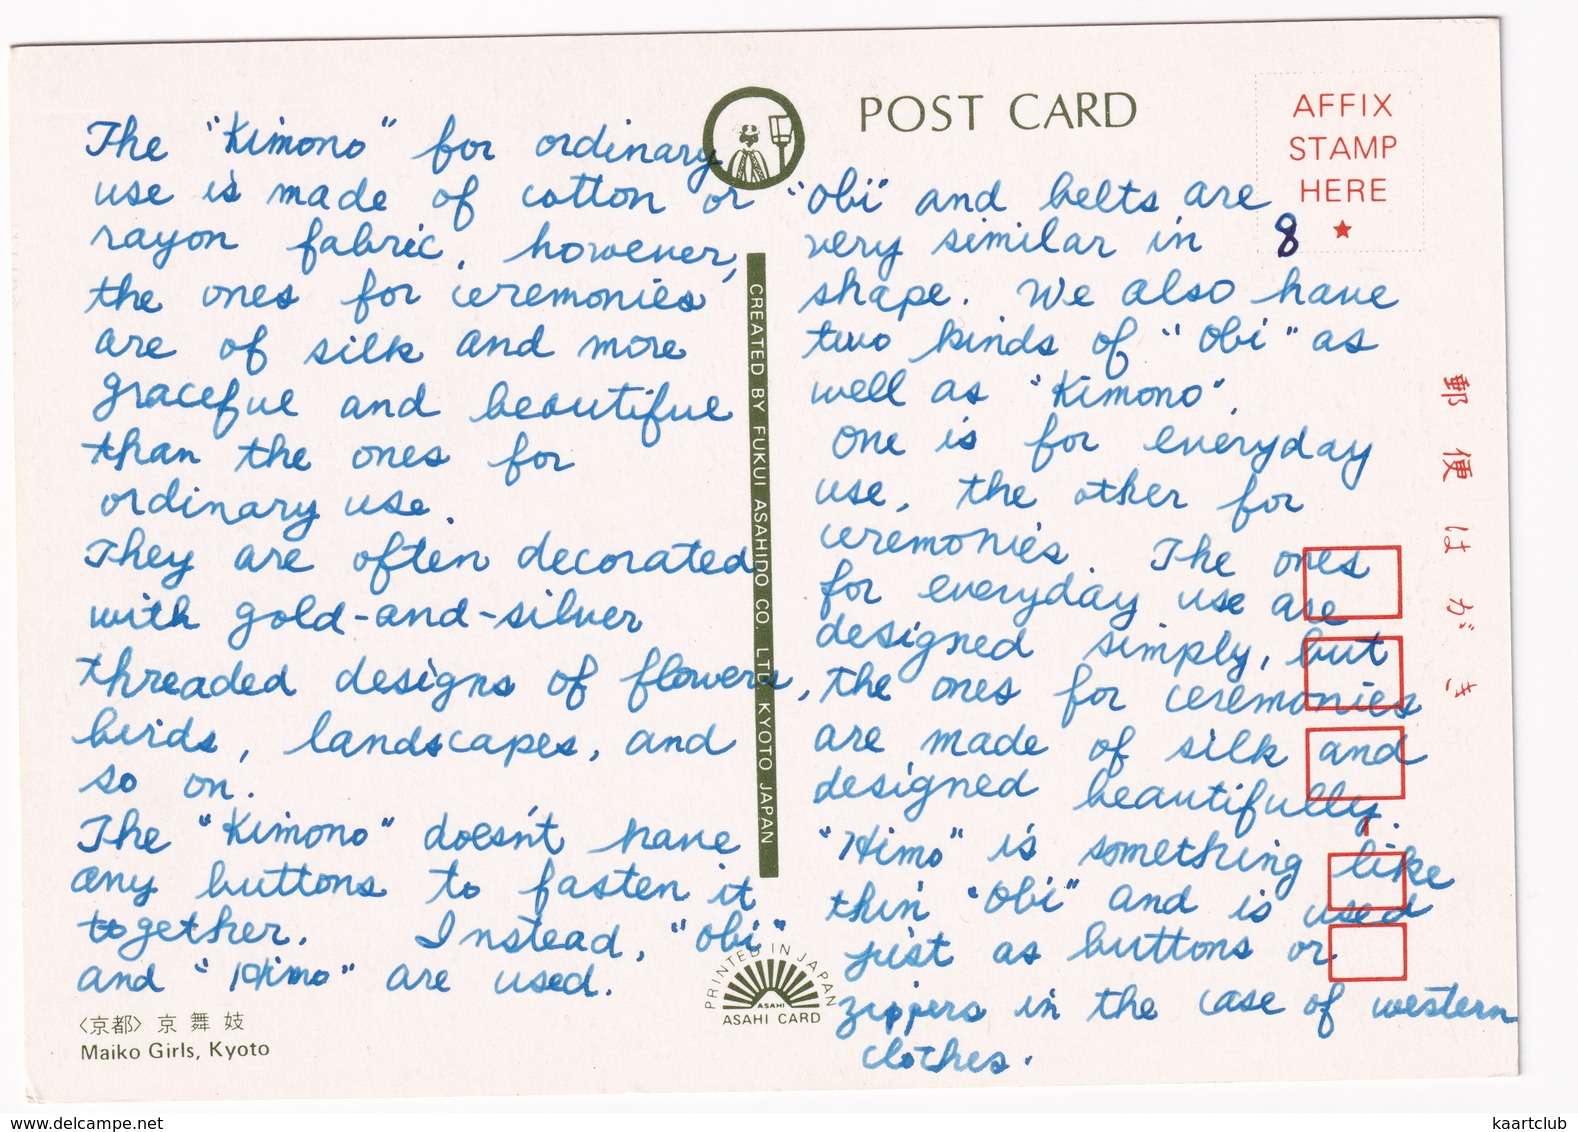 The "Kimono" for ordinary
use is made of cotton or
rayon fabric, however,
the ones for ceremonies
are of silk and more
graceful and beautiful
than the ones for
ordinary use.
They are often decorated
with gold-and-silver
threaded designs of flowers,
birds, landscapes, and
so on.
The "Kimono" doesn't have
any buttons to fasten it
together. Instead, "Obi"
and "Himo" are used.
〈京都〉 京舞妓
Maiko Girls, Kyoto
POST CARD
CREATED BY FUKUI ASAHIDO CO. LTD. KYOTO JAPAN
PRINTED IN JAPAN
ASAHI
ASAHI CARD
AFFIX
STAMP
HERE
★
8
"Obi" and belts are
very similar in
shape. We also have
two kinds of "Obi" as
well as "Kimono".
One is for everyday
use, the other for
ceremonies. The ones
for everyday use are
designed simply, but
the ones for ceremonies
are made of silk and
designed beautifully.
"Himo" is something like
thin "Obi" and is used
just as buttons or
zippers in the case of western
clothes.
郵便はがき
www.delcampe.net
kaartclub